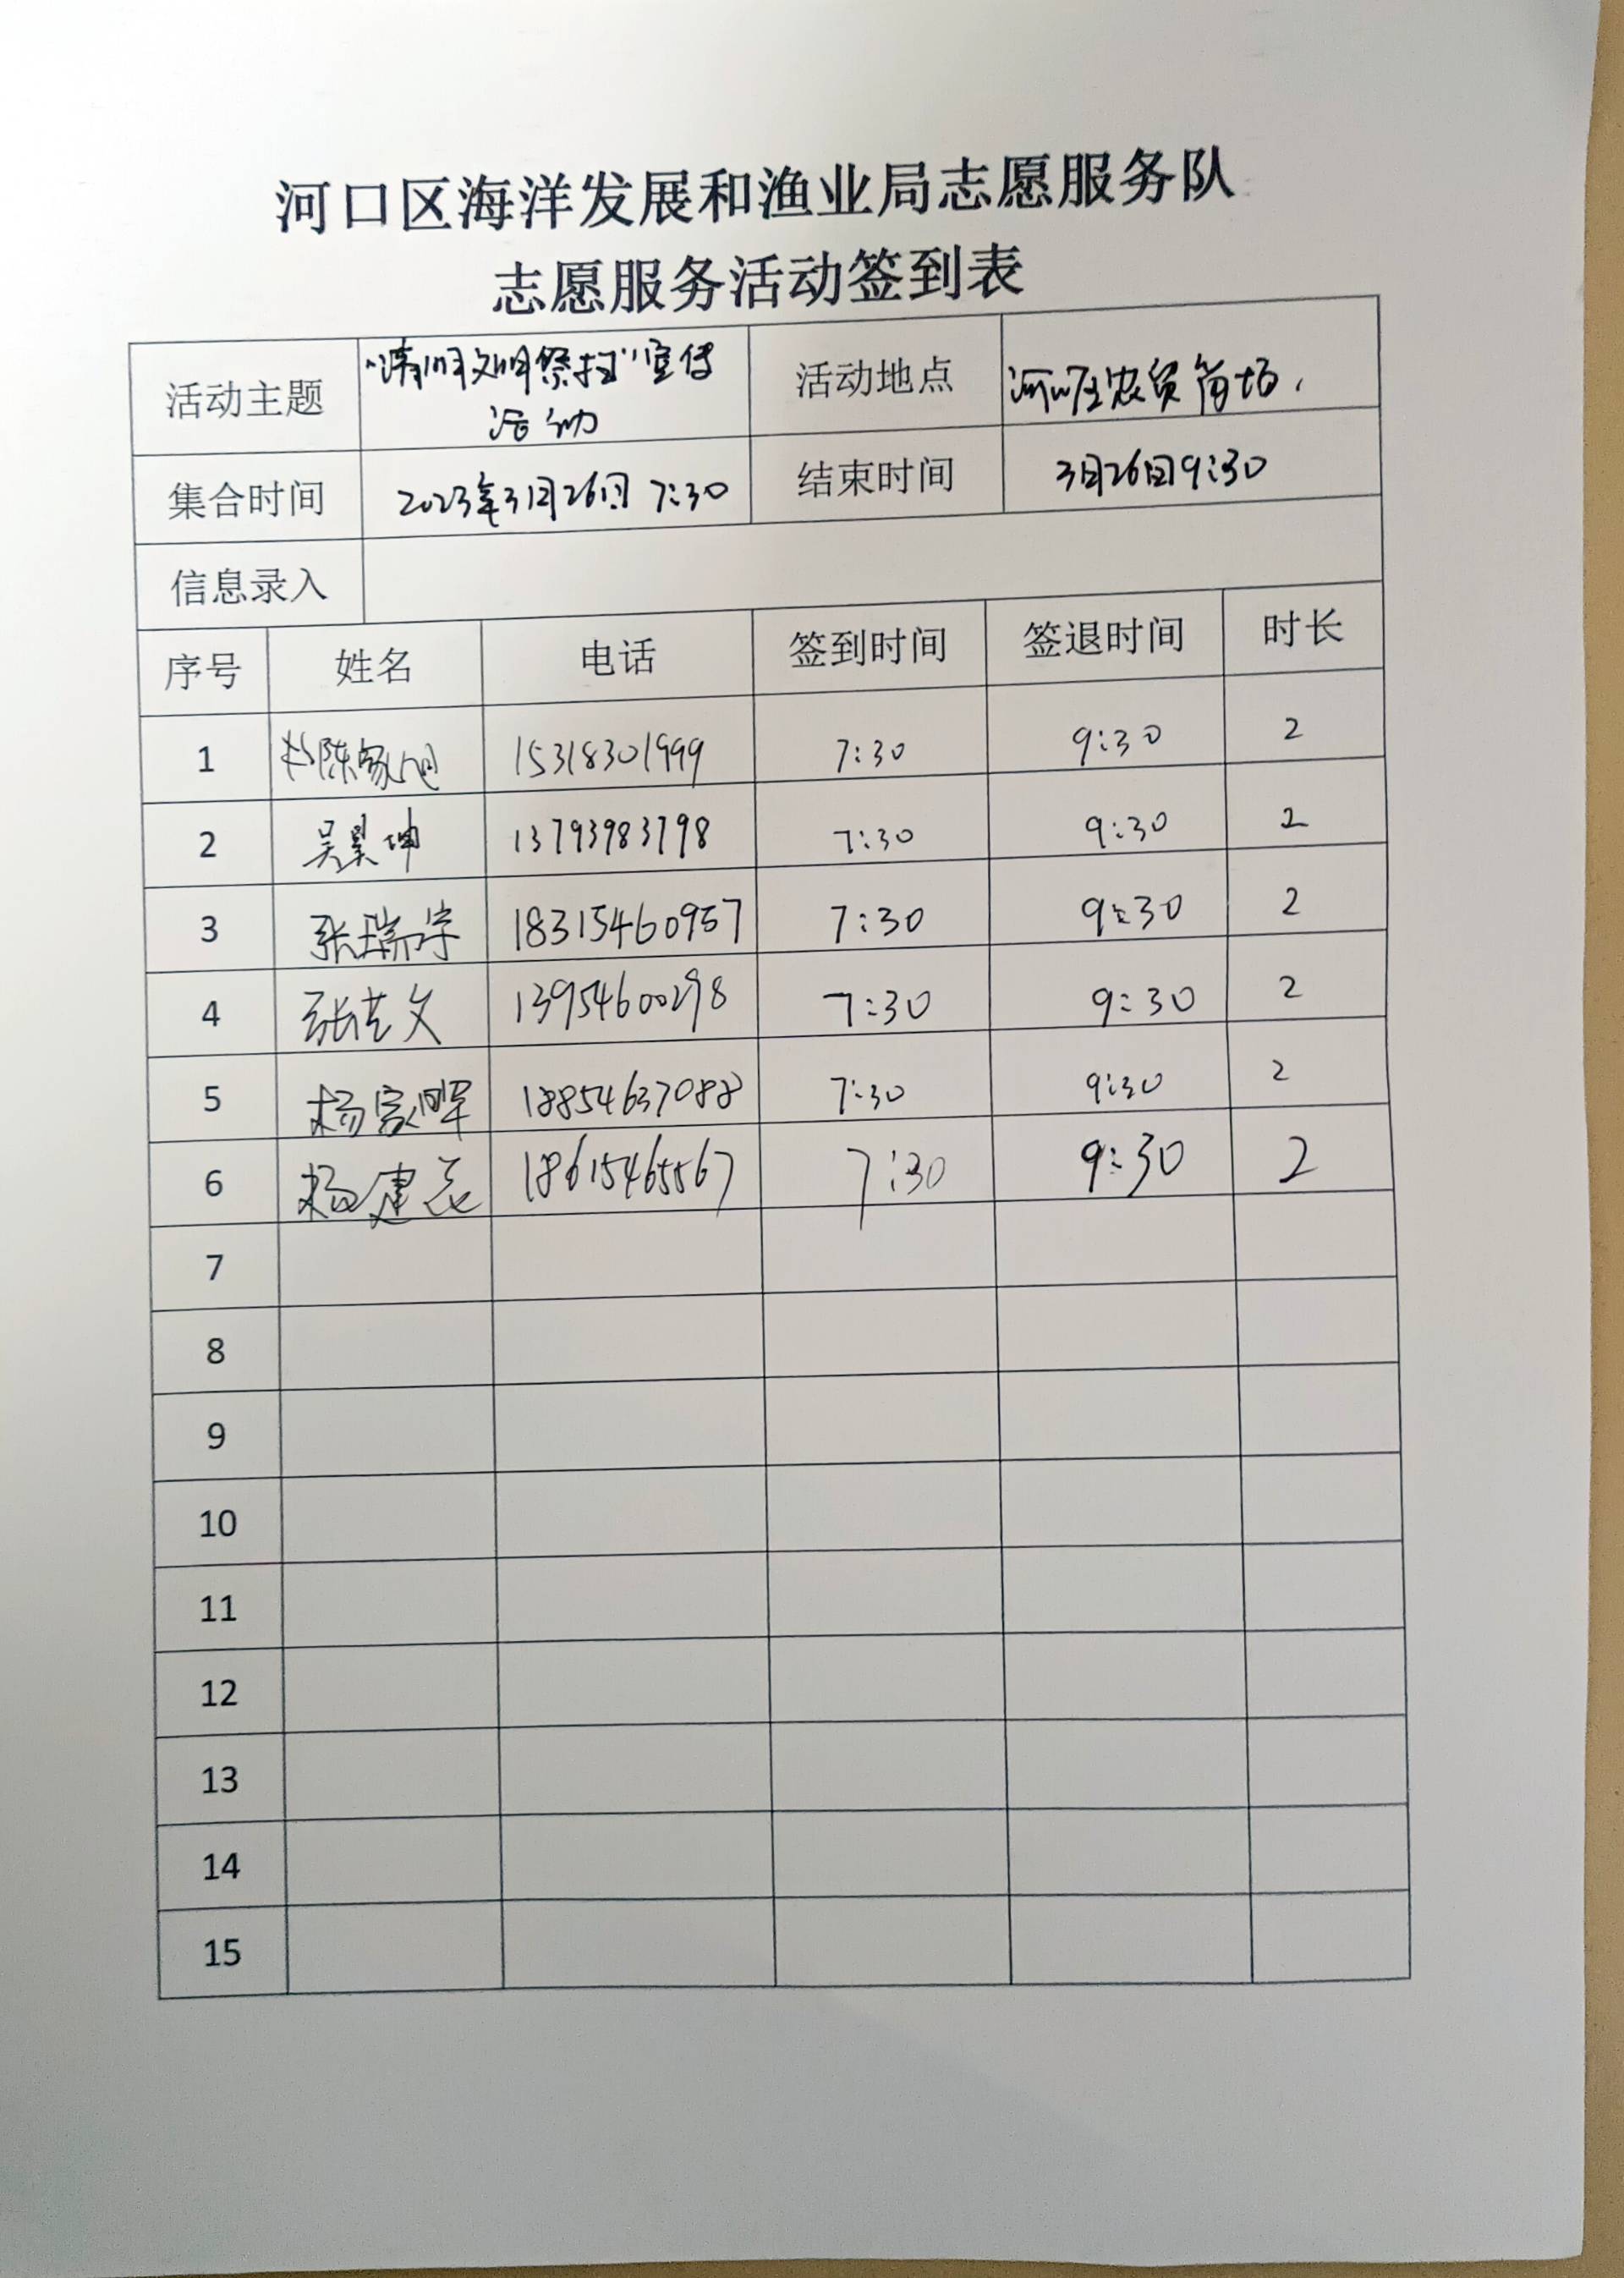 河口区海洋发展和渔业局志愿服务队
志愿服务活动签到表
活动主题 “清明文明祭扫”宣传活动 活动地点 河口区农贸市场
集合时间 2023年3月26日 7:30 结束时间 3月26日9:30
信息录入
序号 姓名 电话 签到时间 签退时间 时长
1 15318301999 7:30 9:30 2
2 吴昊坤 13793983798 7:30 9:30 2
3 张瑞宇 18315460957 7:30 9:30 2
4 张艺文 13954600298 7:30 9:30 2
5 杨家晖 18854637088 7:30 9:30 2
6 杨建 18615465567 7:30 9:30 2
7
8
9
10
11
12
13
14
15